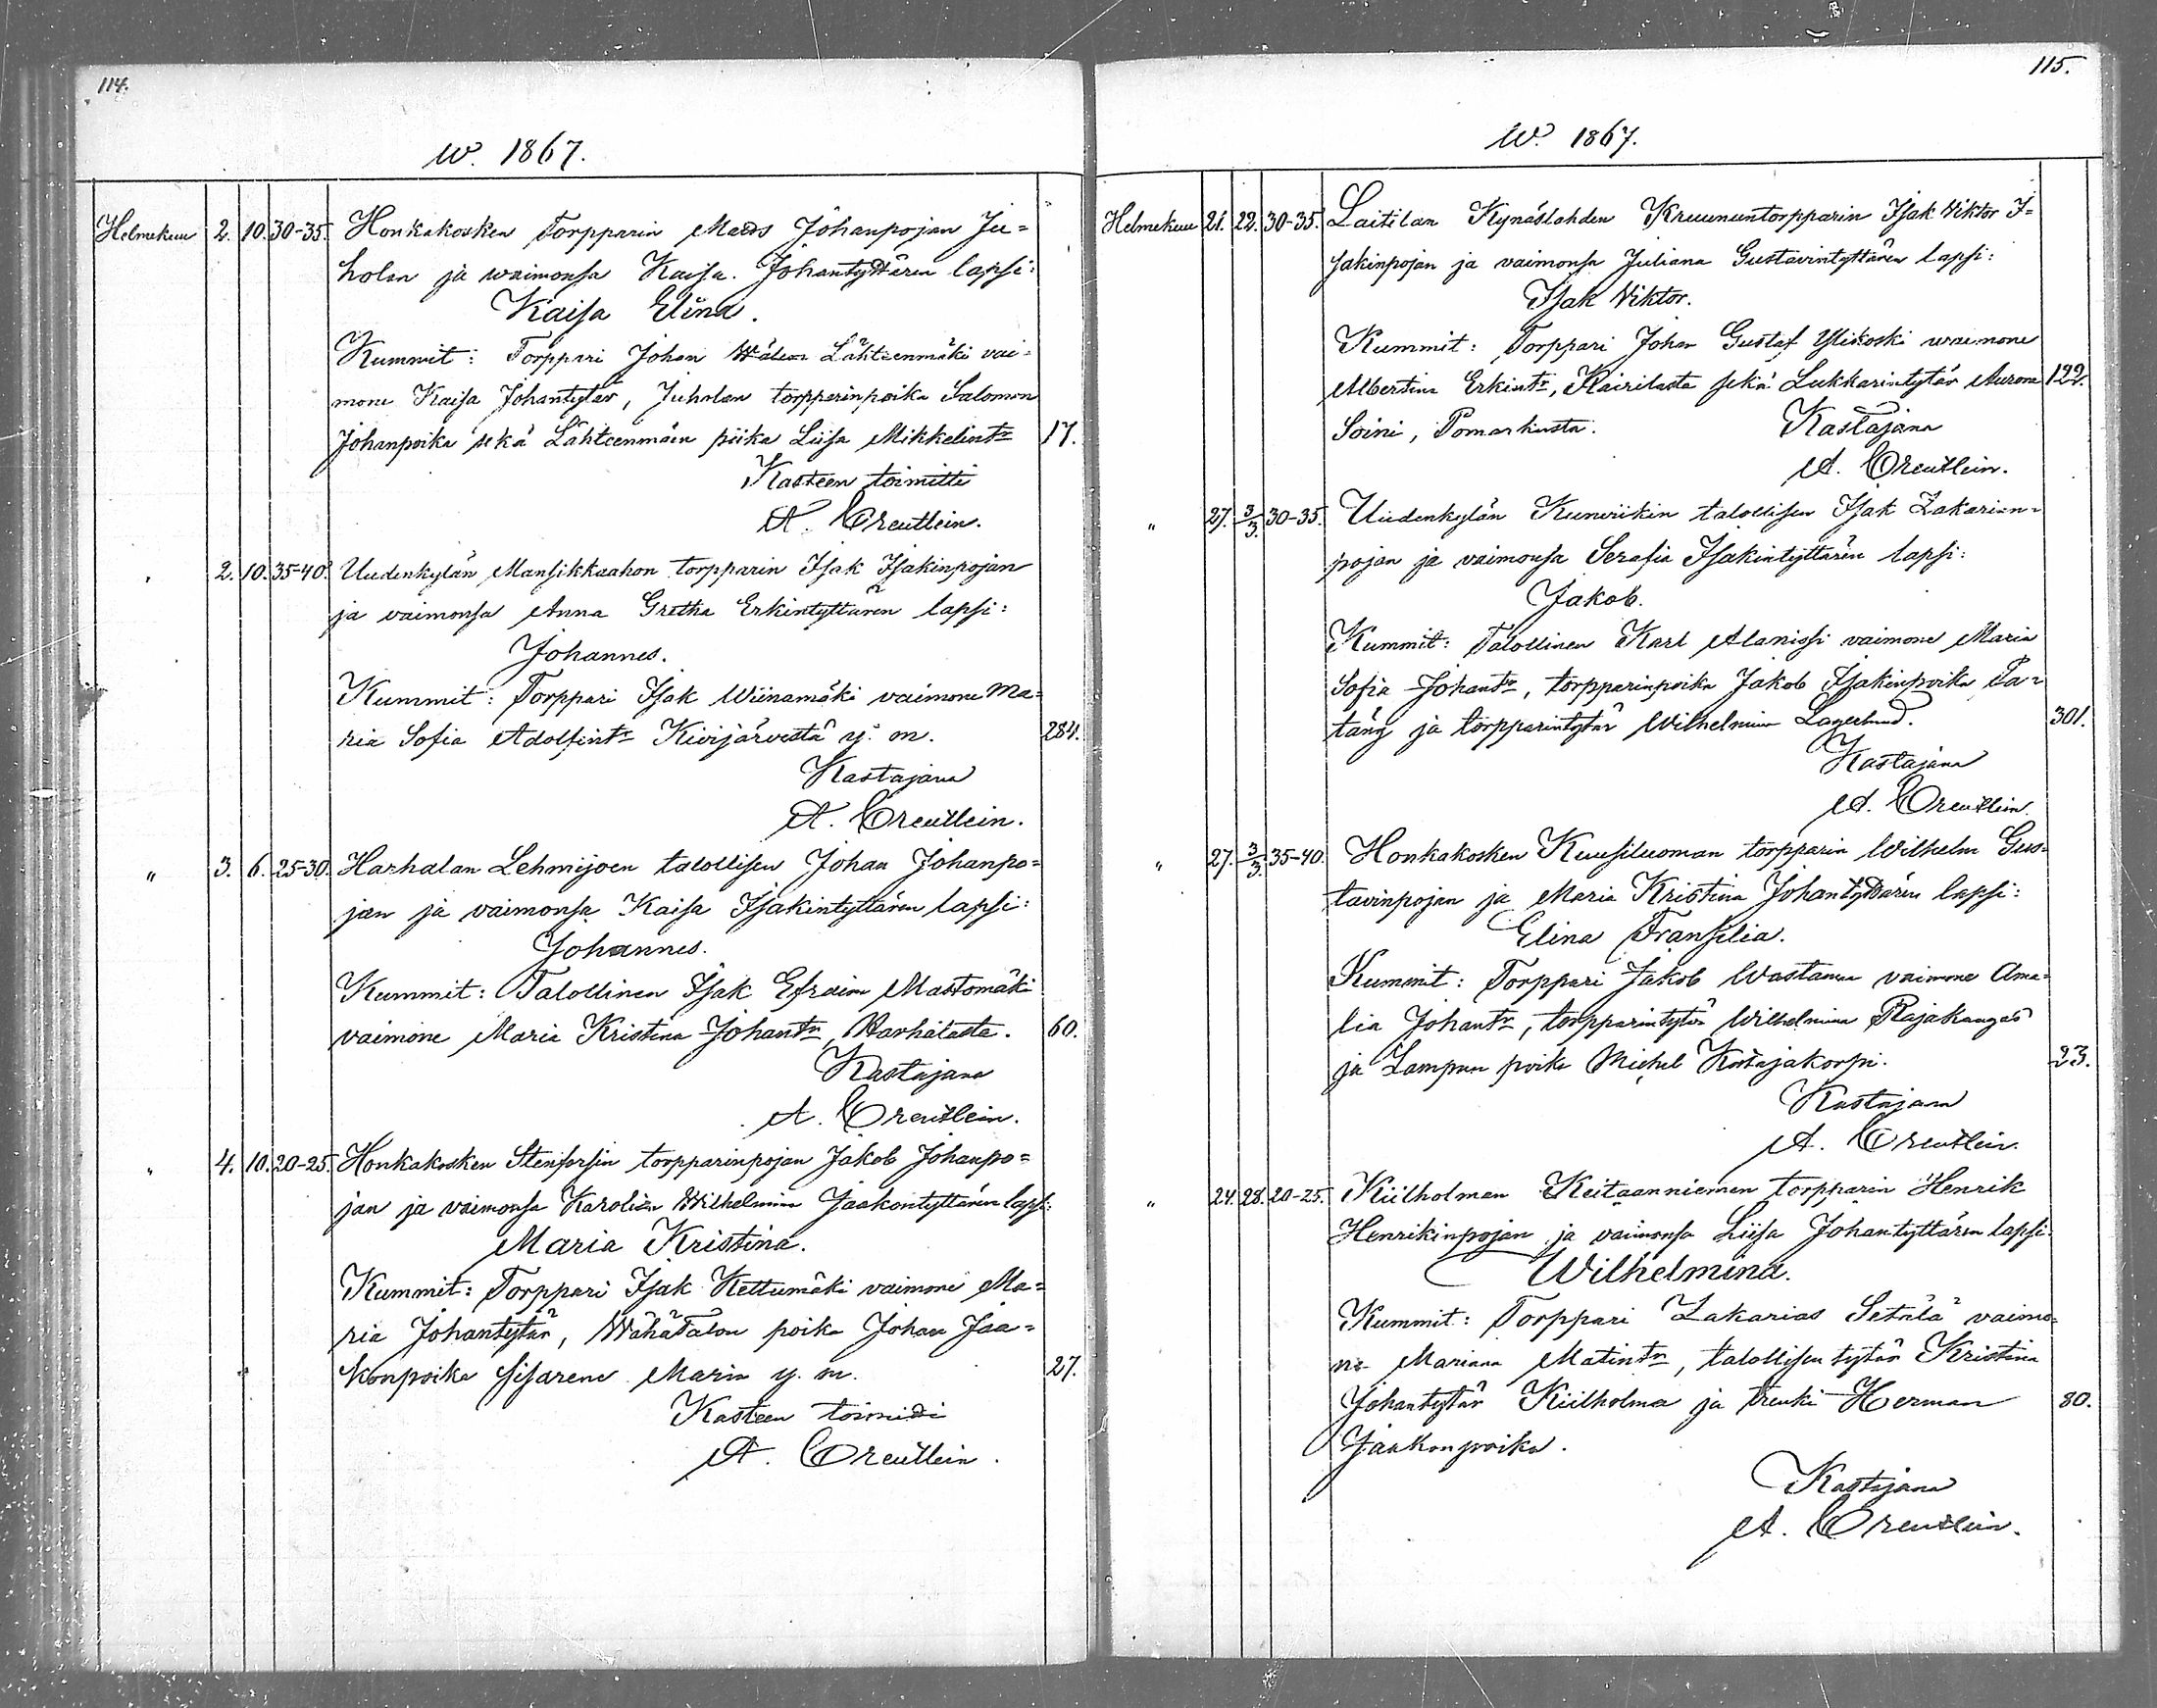 114.
W. 1867.
Helmekuu 2. 10. 30-35. Honkakosken Torpparin Matts Johanpojan Ju=
holan ja waimonsa Kaisa Johantyttären lapsi:
Kaisa Elina.
Kummit: Torppari Johan Lähteenmäki vai=
mone Kaisa Johantytär, Juholan torpparinpoika Salomon
Johanpoika sekä Lähteenmäen piika Liisa Mikkelintr 17.
Kasteen toimitti
A. Creutlein.
" 2. 10. 35-40. Uudenkylän Mansikkaahon torpparin Isak Isakinpojan
ja vaimonsa Anna Gretha Erkintyttären lapsi:
Johannes.
Kummit: Torppari Isak Wiinamäki vaimone Ma=
ria Sofia Adolfintr Kivijärvestä y. m. 284.
Kastajana
A. Creutlein.
" 3. 6. 25-30. Harhalan Lehmijoen talollisen Johan Johanpo=
jan ja vaimonsa Kaisa Isakintyttären lapsi:
Johannes.
Kummit: Talollinen Isak Efraim Mastomäki
vaimone Maria Kristina Johantr, Harhalasta. 60.
Kastajana
A. Creutlein.
" 4. 10. 20-25. Honkakosken Stenforsin torpparinpojan Jakob Johanpo=
jan ja vaimonsa Karolina Wilhelmina Jaakontyttären lapsi:
Maria Kristina.
Kummit: Torppari Isak Kettumäki vaimone Ma=
ria Johantytär, Wähätalon poika Johan Jaa=
konpoika sisarene Maria y. m. 27.
Kasteen toimitti
A. Creutlein.
115.
W. 1867.
Helmekuu 21. 22. 30-35. Laitilan Kynäslahden Kruununtorpparin Isak Viktor I=
sakinpojan ja vaimonsa Juliana Gustavintyttären lapsi:
Isak Viktor.
Kummit: Torppari Johan Gustaf Ylikoski waimone
Albertina Erkintr, Kairilasta sekä Lukkarintytär Aurora 122.
Soini, Pomarkusta. Kastajana
A. Creutlein.
" 27. 3/3. 30-35. Uudenkylän Kunvikin talollisen Isak Zakarian=
pojan ja vaimonsa Serafia Isakintyttären lapsi:
Jakob.
Kummit: Talollinen Karl Alanissi vaimone Maria
Sofia Johantr, torpparinpoika Jakob Isakinpoika Ta=
täng ja torpparintytär Wilhelmina Lagerlund. 301.
Kastajana
A. Creutlein.
" 27. 3/3. 35-40. Honkakosken Kuusiluoman torpparin Wilhelm Gus=
tavinpojan ja Maria Kristina Johantyttären lapsi:
Elina Fransilia.
Kummit: Torppari Jakob Wastamaa vaimone Ama=
lia Johantr, torpparintytär Wilhelmina Rajakangas
ja Lampun poika Michel Katajakorpi. 23.
Kastajana
A. Creutlein.
" 24. 28. 20-25. Kiilholman Keitaanniemen torpparin Henrik
Henrikinpojan ja vaimonsa Liisa Johantyttären lapsi:
Wilhelmina.
Kummit: Torppari Zakarias Setälä vaimo=
ne Mariana Matintr, talollisen tytär Kristina
Johantytär Kiilholma ja trenki Herman 80.
Jaakonpoika.
Kastajana
A. Creutlein.